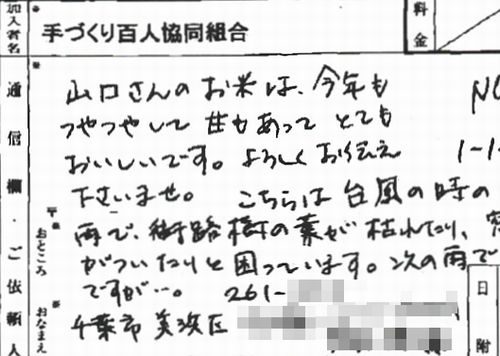 加入者名
手づくり百人協同組合
料金
通信欄・ご依頼人
山口さんのお米は、今年も
つやつやして 甘もあって とても
おいしいです。よろしくお伝え
下さいませ。 こちらは台風の時の
雨で、街路樹の葉が枯れたり、
がついたりと困っています。次の雨で
ですが…。 261-
千葉市 美浜区
〒
おところ
おなまえ
1-1-
日附